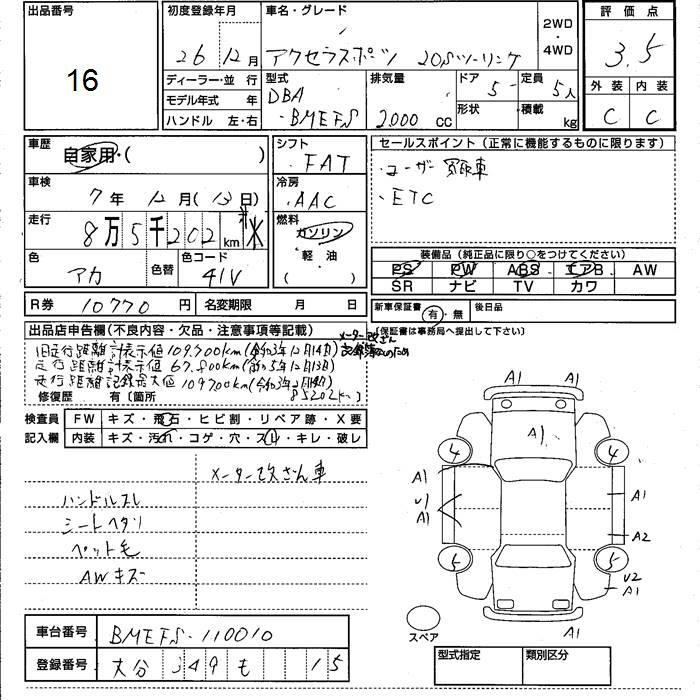 出品番号
16
初度登録年月
26 年 12 月
車名・グレード
アクセラスポーツ 20Sツーリング
2WD
・
4WD
評価点
3.5
外装 内装
C C
ディーラー・並行
モデル年式 年
ハンドル 左・右
型式
DBA
-BMEFS
排気量
2000 CC
ドア 5
形状
定員 5人
積載 kg
車歴
自家用・( )
シフト
FAT
セールスポイント(正常に機能するものに限ります)
・ユーザー買取車
・ETC
車検
7年 12月(13日)
冷房
AAC
走行
8万5千202km
燃料
ガソリン
軽油
( )
色
アカ
色替
色コード
41V
装備品(純正品に限り○をつけてください)
PS PW ABS エアB AW
SR ナビ TV カワ
R券 10770円
名変期限 月 日
新車保証書 有・無
後日品
(保証書は事務局へ提出して下さい)
出品店申告欄(不良内容・欠品・注意事項等記載)
旧走行距離計表示値109,700km(令和3年12月14日)
走行距離計表示値67,800km(令和5年12月13日)
走行距離記録最大値109700km(令和3年12月14日)
メーター改ざん
のため
85202km)
修復歴 有(箇所
検査員 FW キズ・飛石・ヒビ割・リペア跡・X要
記入欄 内装 キズ・汚れ・コゲ・穴・スレ・キレ・破レ
メーター改ざん車
ハンドルスレ
シートヘタリ
ペット毛
AWキズ
A1
A1
4 4
A1 A1
U1
A1
A2
5 5
U2
A1
A1
スペア
車台番号 BMEFS-110010
登録番号 大分 349 も 15
型式指定 類別区分